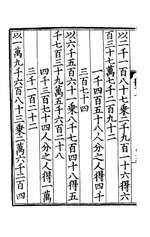 以二千一百八十七乘二千九百一十六得六
百三十七萬七千二百九十二
一千四百五十八人分之得四千
三百七十四
以六千五百六十一乘八千七百四十八得五
千七百三十九萬五千六百二十八
四千三百七十四人分之得一萬
三千一百二十二
以一萬九千六百八十三乘二萬六千二百四